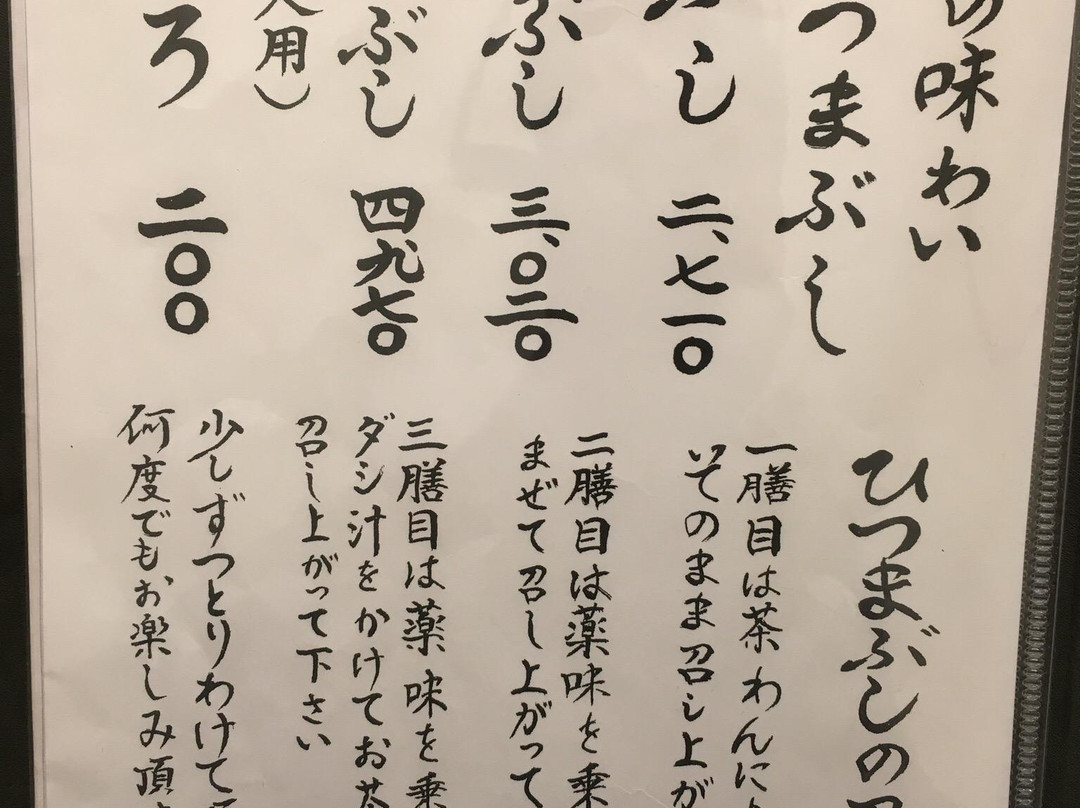 の味わい
つまぶし
し 二、七一〇
ぶし 三、〇二〇
ぶし 四九七〇
用)
ろ 二〇〇
ひつまぶしの
一膳目は茶わんに
いてそのまま召し上が
二膳目は薬味を乗
まぜて召し上がって
三膳目は薬味を乗
ダシ汁をかけてお茶
召し上がって下さい
少しずつとりわけて
何度でもお楽しみ頂